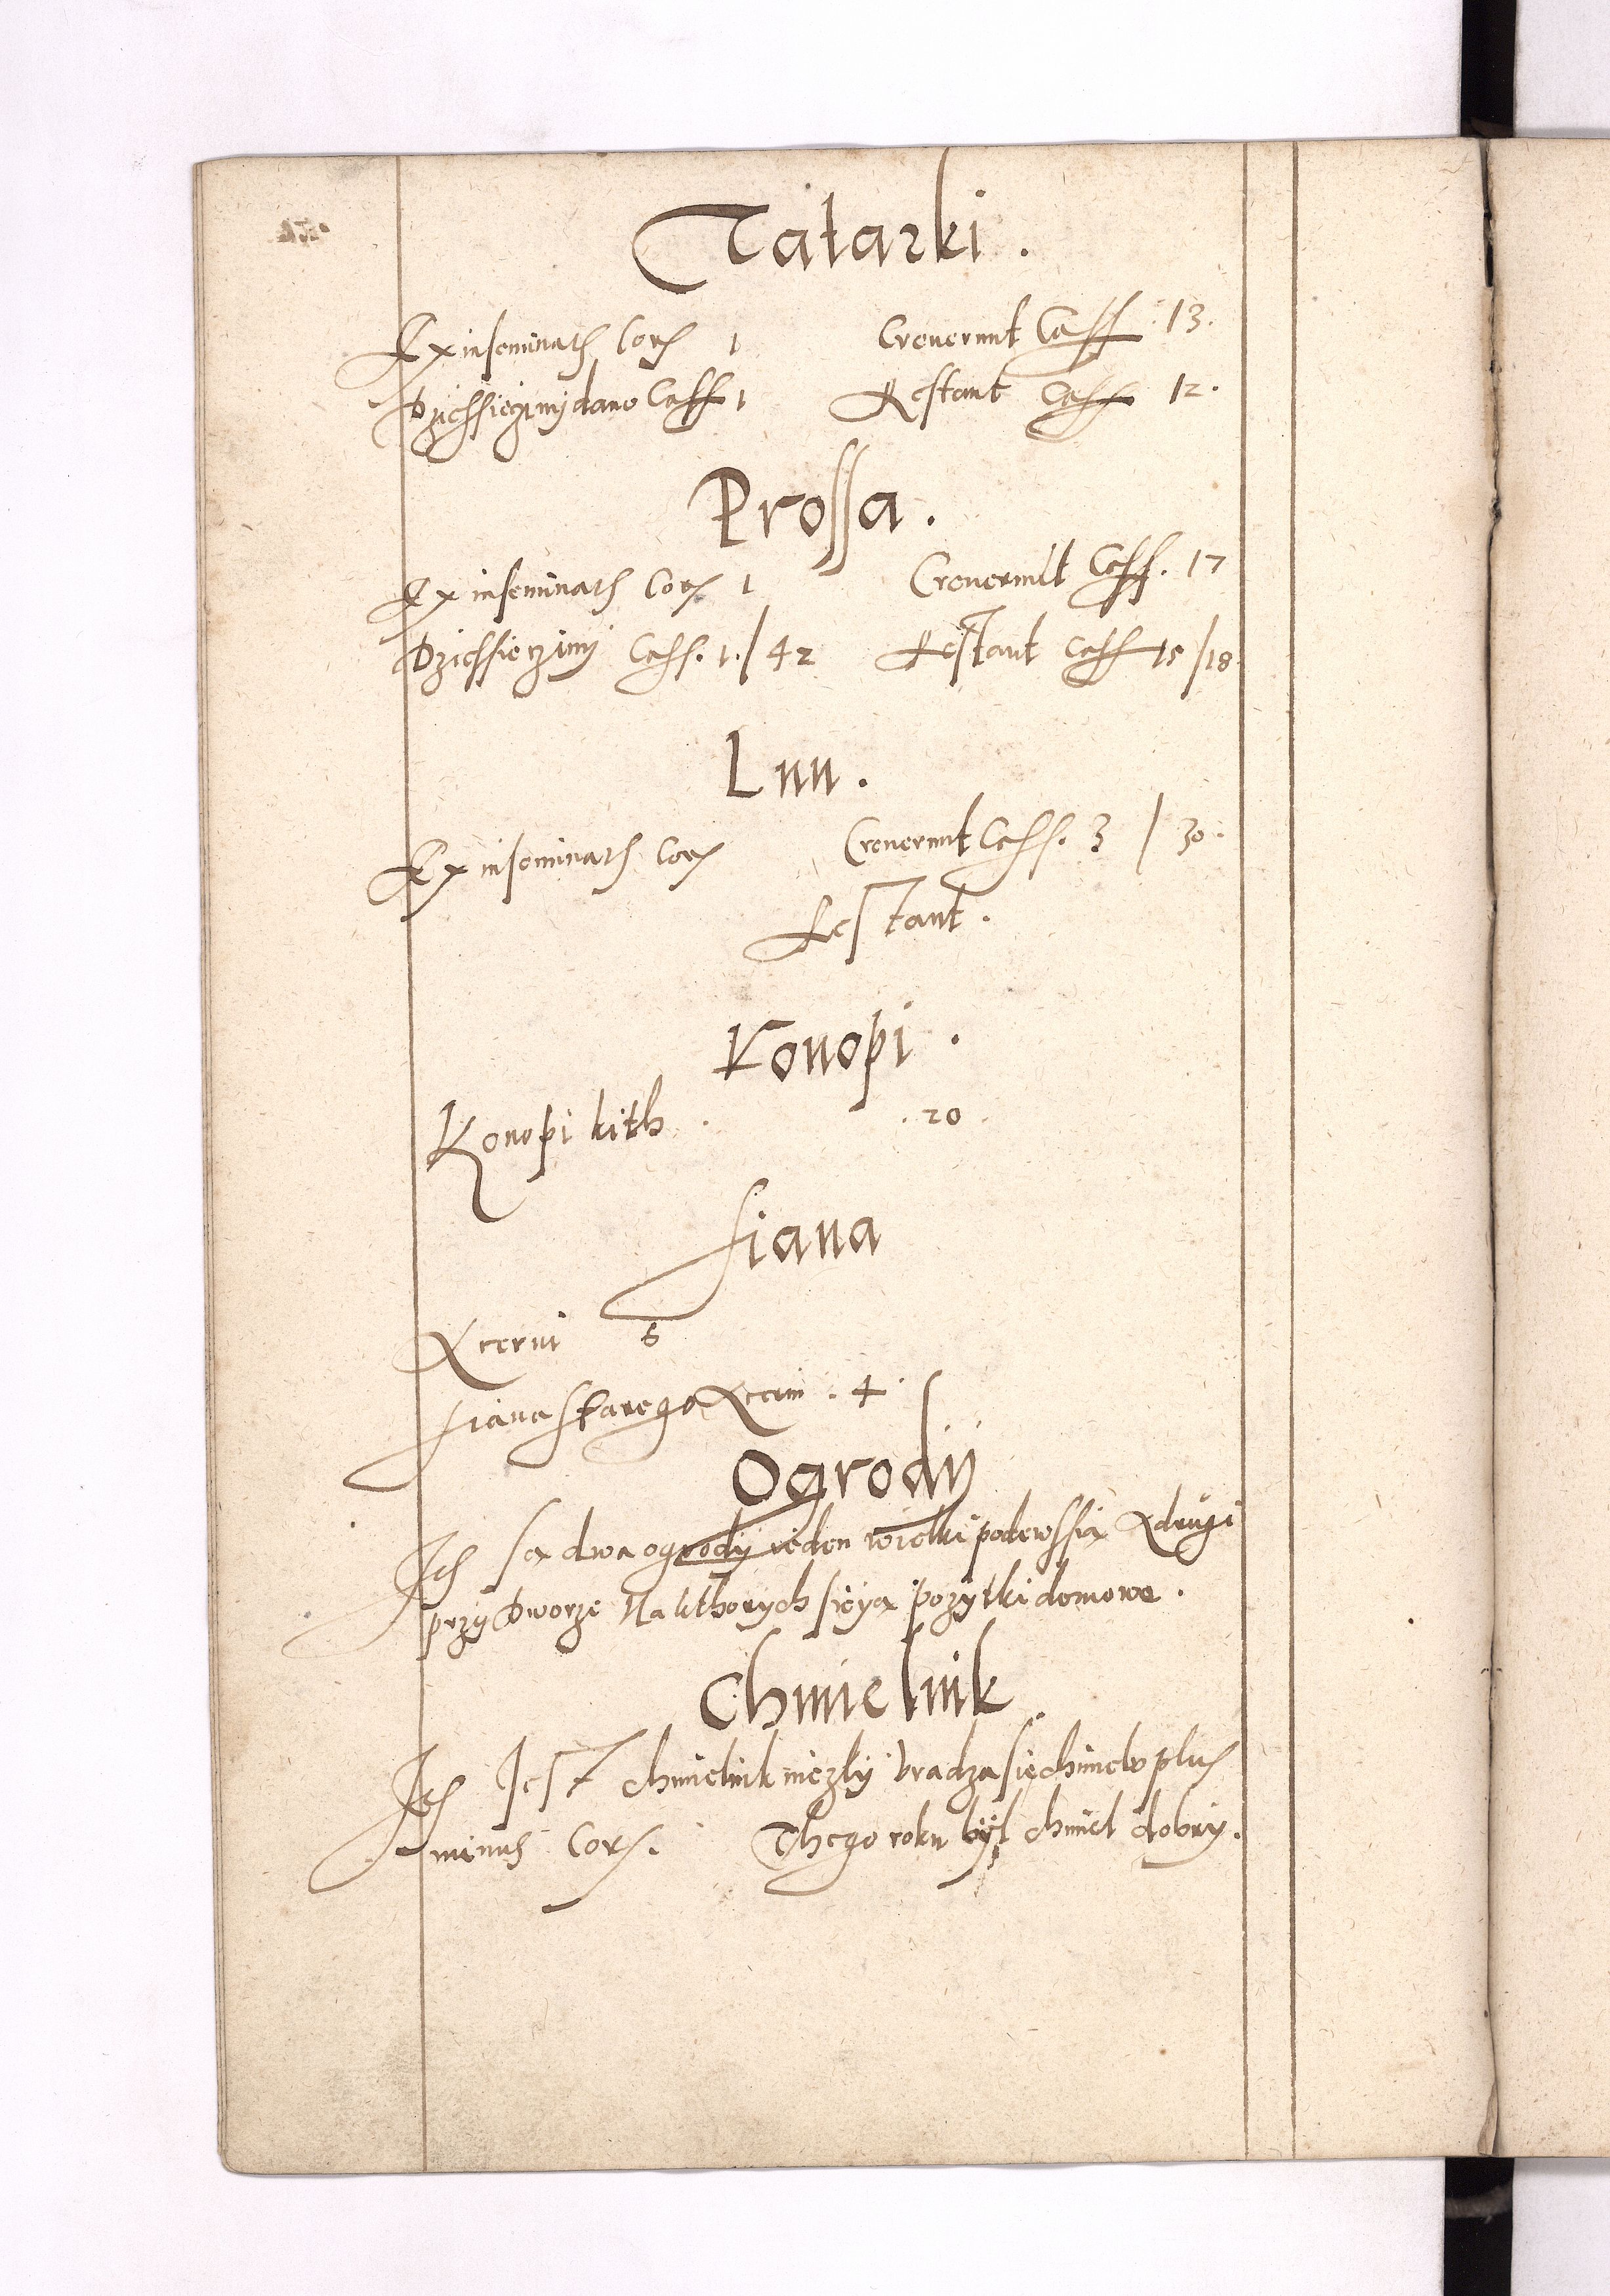 Tatarki .
Ex inseminatis Cor 1 Creverunt Cass . 13 .
Dziessieęziny dano Cass 1 Restant Cass 12 .
Prossa .
Ex inseminatis Cor 1 Creverunt Cass . 17
Dziessieęziny Cass . 1 . / 42 Restant Cass 15 / 18
Lnu .
Ex inseminatis Cor Creverunt Cass . 3 / 30 .
Restant .
Konopi .
Konopi kith . . 20 .
Siana
Acervi 6
Siana starego Acervi . 4 .
Ogrody
są dwa ogrody ieden wielki podewssią A drugi
przy dworze Na kthorych sieyą pozytki domowe .
Chmielnik
Jest chmielnik niezły Vradza się chmielu plus
minus Cor . Thego roku był chmiel dobry .